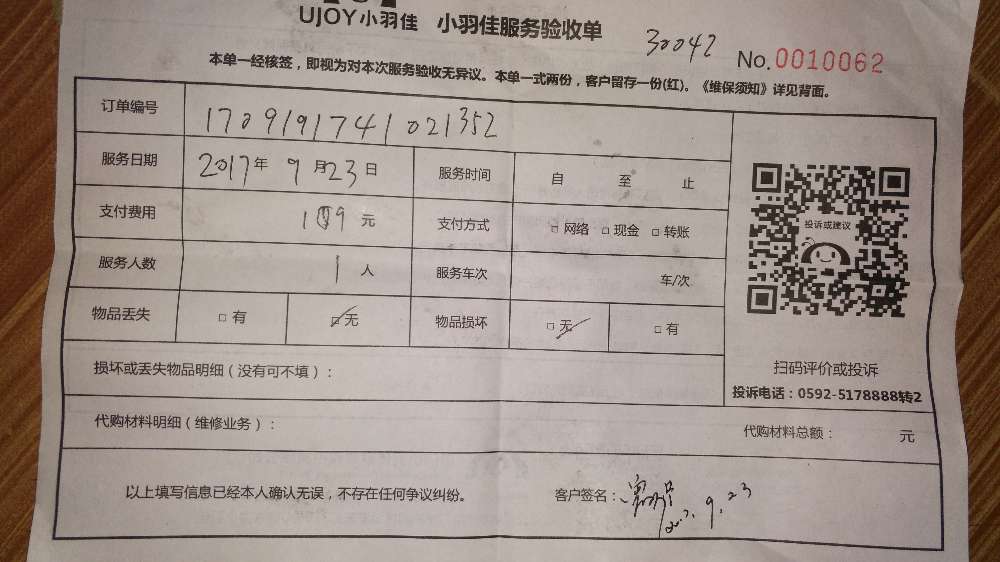 UJOY小羽佳 小羽佳服务验收单
30042 No.0010062
本单一经核签，即视为对本次服务验收无异议。本单一式两份，客户留存一份(红)。《维保须知》详见背面。
订单编号 1709191741021352
服务日期 2017年 9月23日 服务时间 自 至 止
支付费用 109元 支付方式 □网络 □现金 □转账
投诉或建议
服务人数 1人 服务车次 车/次
物品丢失 □有 □无 物品损坏 □无 □有
扫码评价或投诉
投诉电话：0592-5178888转2
损坏或丢失物品明细（没有可不填）：
代购材料明细（维修业务）： 代购材料总额： 元
以上填写信息已经本人确认无误，不存在任何争议纠纷。 客户签名：
9.23